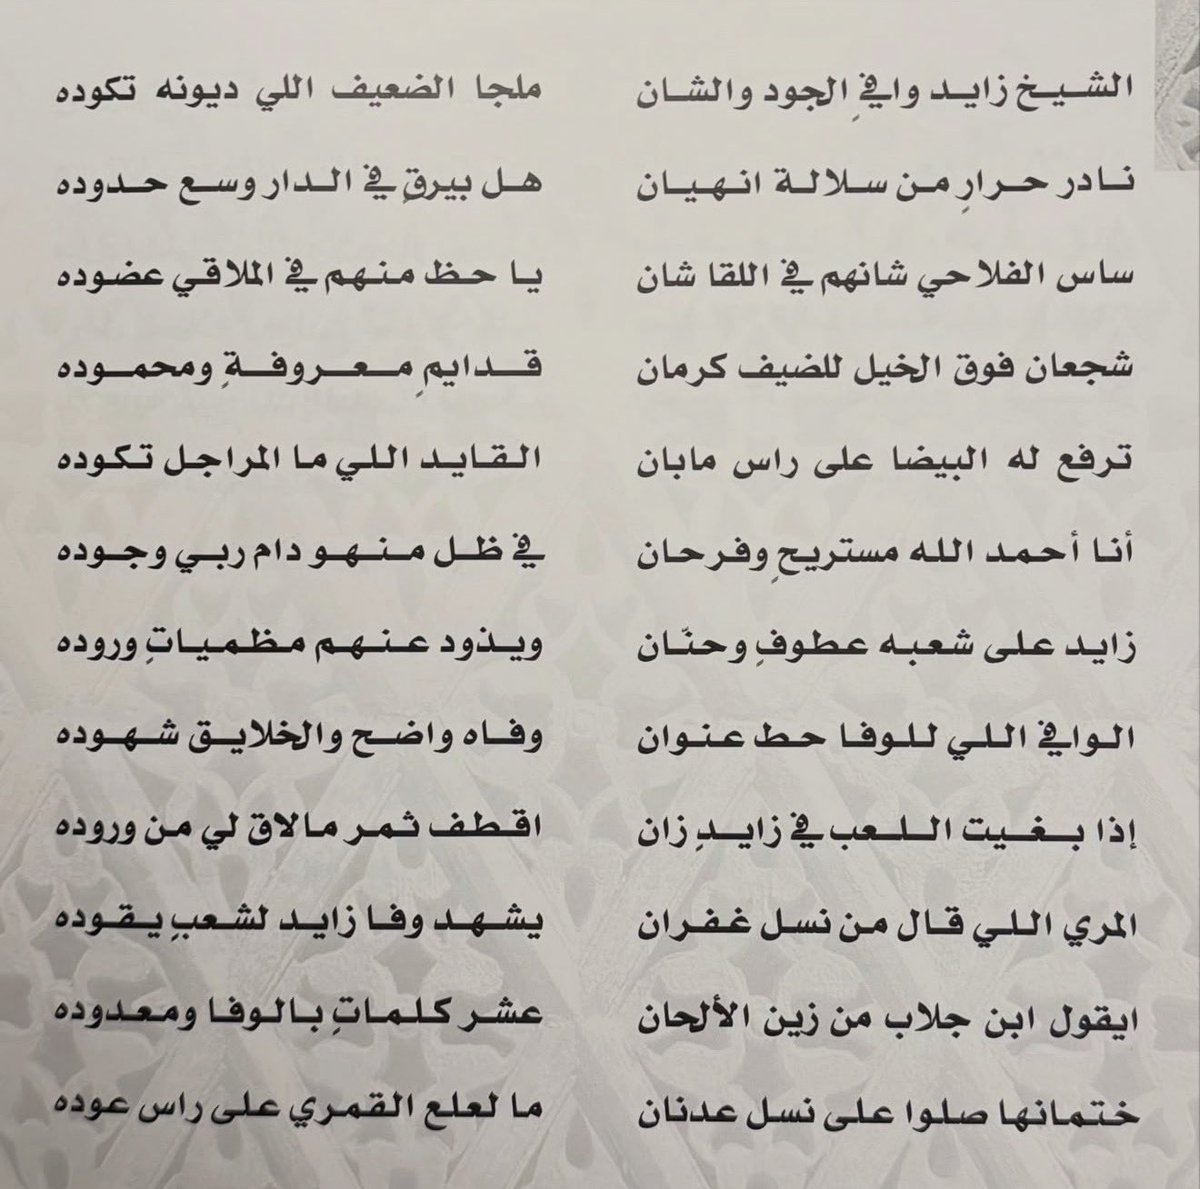 الشيخ زايد وافيٍ الجود والشان ملجا الضعيف اللي ديونه تكوده
نادر حرارٍ من سلالة انهيان هل بيرقٍ في الدار وسع حدوده
ساس الفلاحي شانهم في اللقا شان يا حظ منهم في الملاقي عضوده
شجعان فوق الخيل للضيف كرمان قدايمٍ معروفةٍ ومحموده
ترفع له البيضا على راس مابان القايد اللي ما المراجل تكوده
أنا أحمد الله مستريحٍ وفرحان في ظل منهو دام ربي وجوده
زايد على شعبه عطوفٍ وحنّان ويذود عنهم مظمياتٍ وروده
الوافي اللي للوفا حط عنوان وفاه واضح والخلايق شهوده
إذا بغيت اللعب في زايدٍ زان اقطف ثمر مالاق لي من وروده
المري اللي قال من نسل غفران يشهد وفا زايد لشعبٍ يقوده
ايقول ابن جلاب من زين الألحان عشر كلماتٍ بالوفا ومعدوده
ختمانها صلوا على نسل عدنان ما لعلع القمري على راس عوده